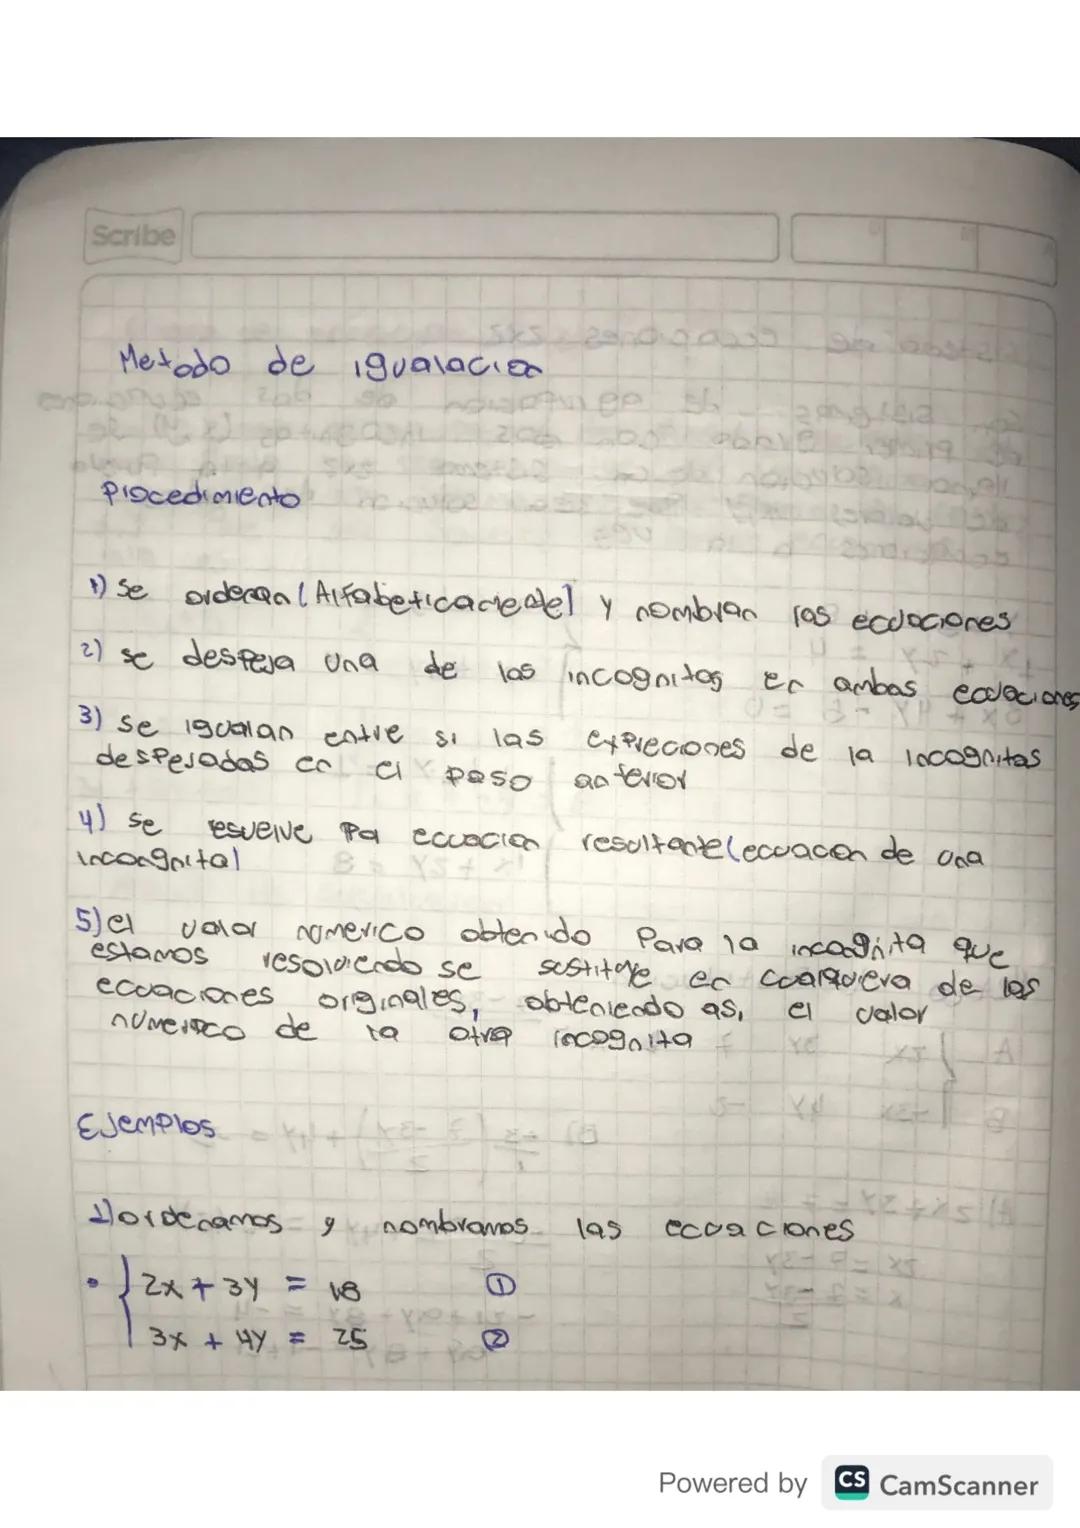 Scribe
Metodo de igualacion
Procedimiento
1) se ordenan (Alfabeticamente) y nombran las ecuaciones
2) se despeja una de las incognitas en ambas ecuaciones
3) se igualan entre si las expreciones de la incognitas
despejadas en el paso anterior
4) se resuelve la ecuacion resultante (ecuacion de una
incongnita)
5) el valor numerico obtenido Para la incognita que
estamos resolviendo se sustituye en cualquiera de las
ecuaciones originales, obteniendo asi, el valor
numerico de la otra incognita
Ejemplos
1) ordenamos y nombramos las ecuaciones
2x + 3y = 18 ①
3x + 4y = 25 ②
Powered by CS CamScanner